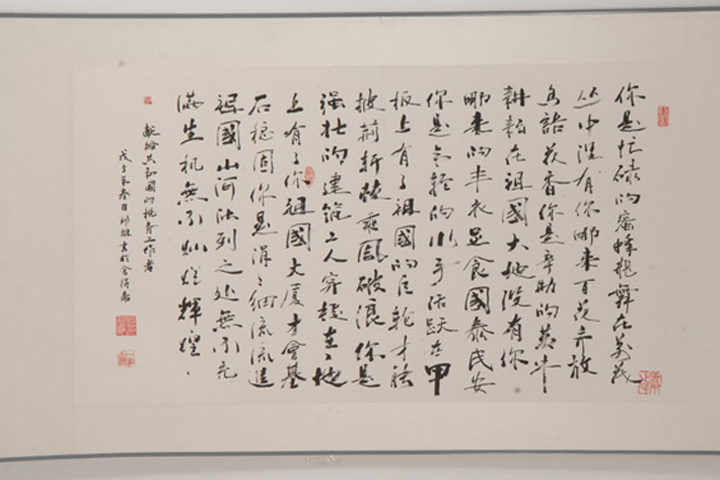 你是忙碌的蜜蜂飞舞在万花
丛中没有你哪来百花齐放
鸟语花香你是辛勤的黄牛
耕耘在祖国大地没有你
哪来的丰衣足食國泰民安
你是年轻的水手活跃在甲
板上有了祖國的巨轮才能
披荆斩棘乘風破浪你是
强壮的建筑工人穿梭在工地
上有了你祖國大厦才會基
石稳固你是涓涓细流流進
祖國山河流到之处無不充
满生机無不灿烂輝煌
献给共和國的税务工作者
戊子年春月